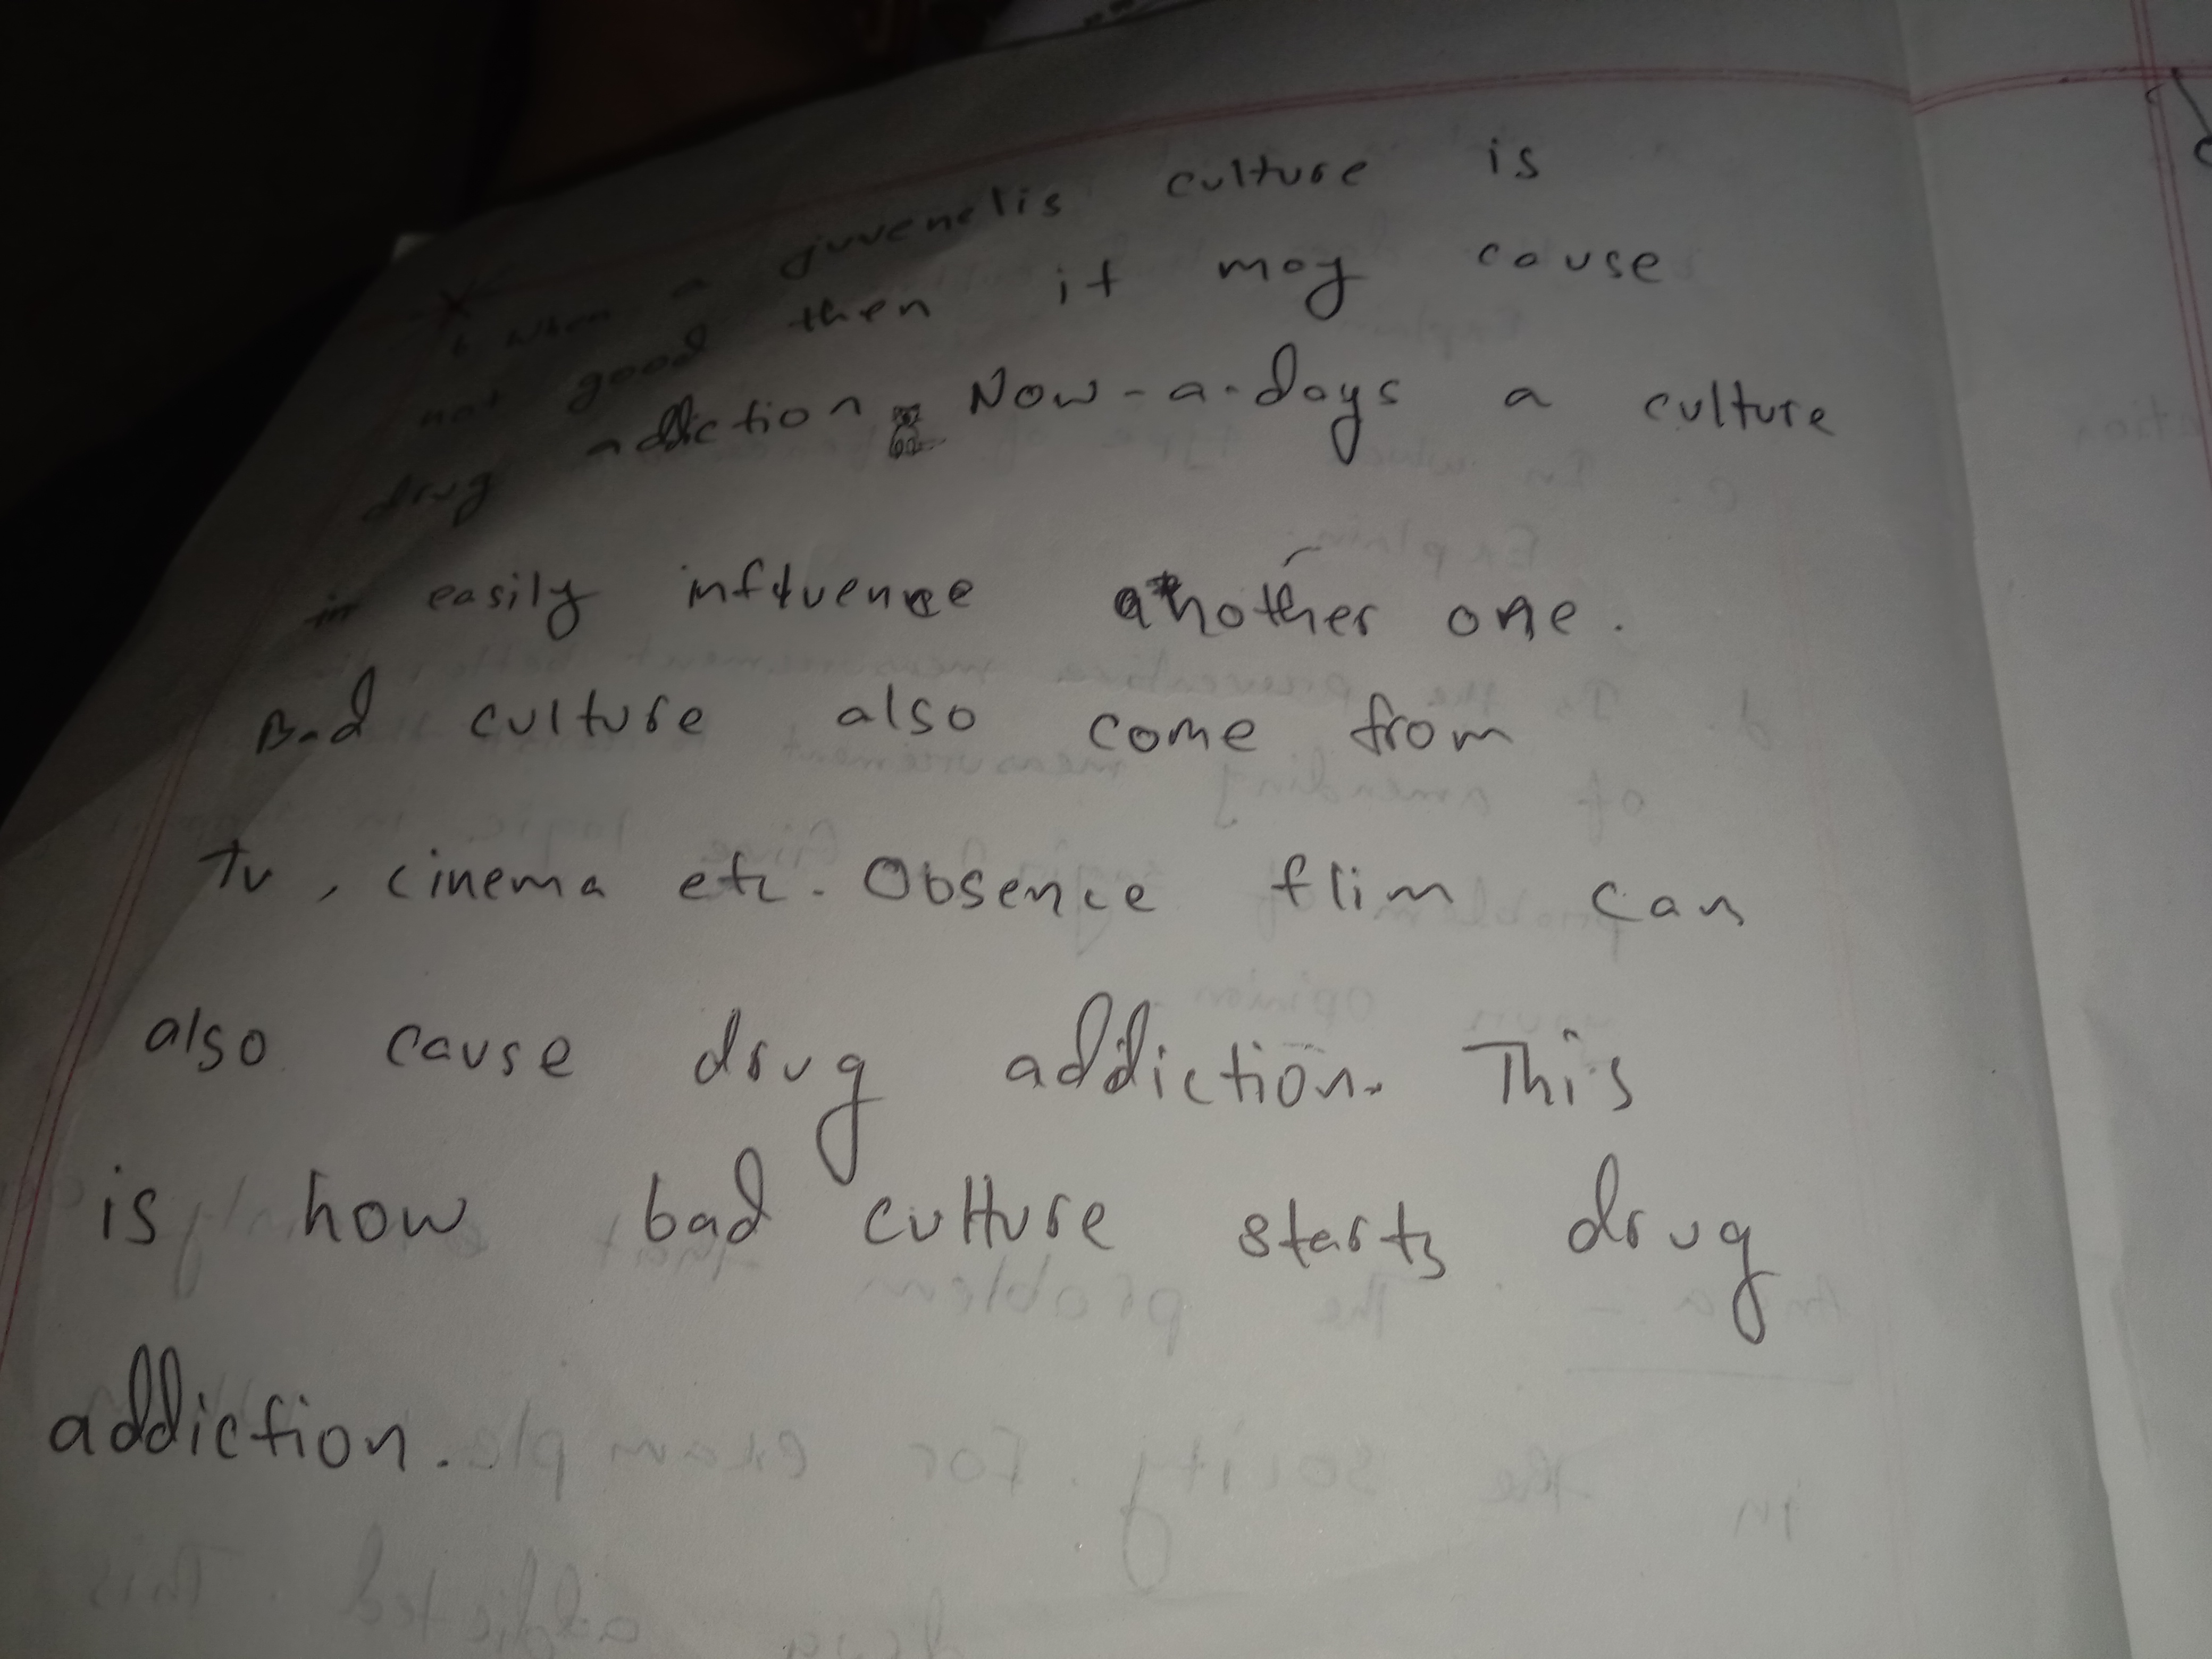 when a juvenelis culture is
not good then it may cause
drug addiction. Now-a-days a culture
easily influence another one.
Bad culture also come from
Tv, cinema etc. Obsence flim can
also cause drug addiction. This
is how bad culture starts drug
addiction.